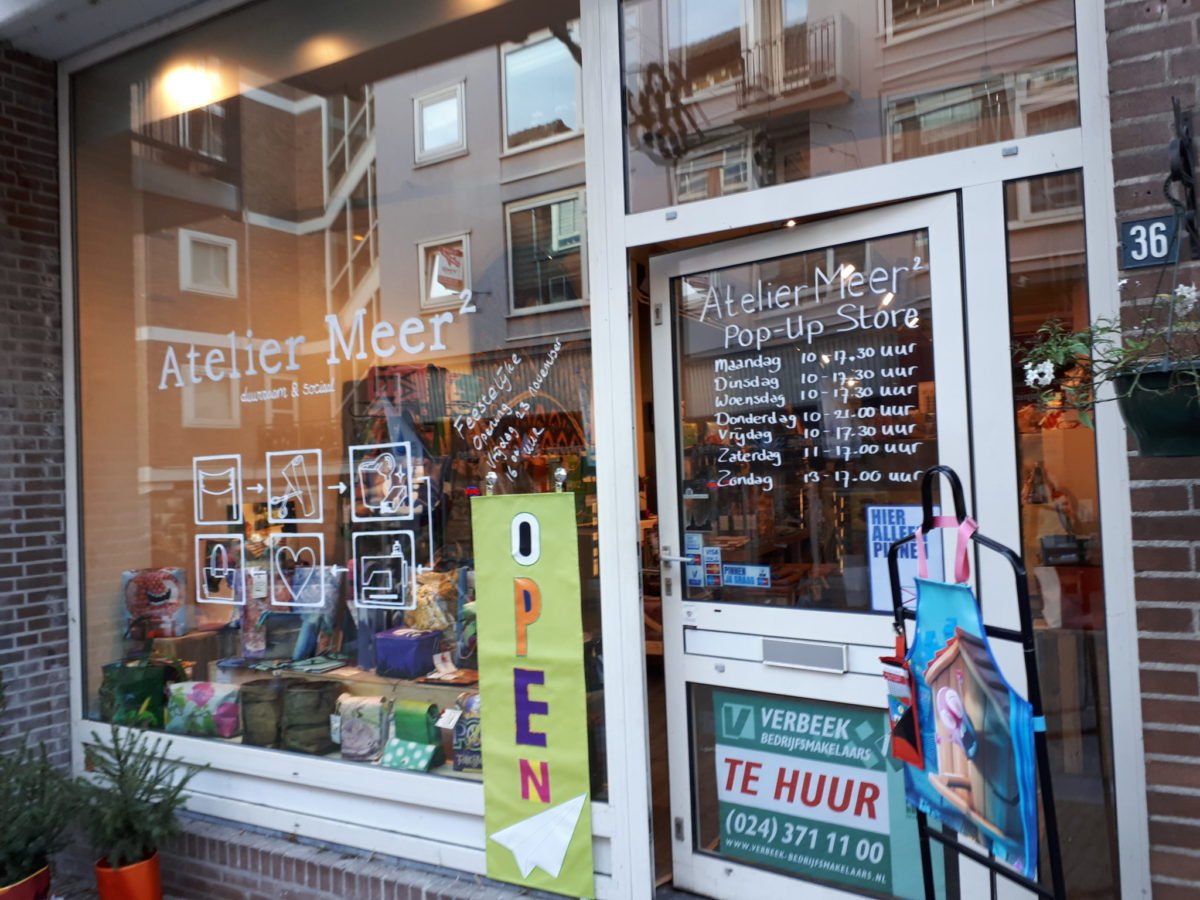 Atelier Meer²
duurzaam & sociaal
Feestelijke
Opening
Vrijdag 23 november
16 en uur
OPEN
Atelier Meer²
Pop-Up Store
Maandag 10 - 17.30 uur
Dinsdag 10 - 17.30 uur
Woensdag 10 - 17.30 uur
Donderdag 10 - 21.00 uur
Vrijdag 10 - 17.30 uur
Zaterdag 11 - 17.00 uur
Zondag 13 - 17.00 uur
36
HIER
ALLEEN
PINNEN
VISA
PINNEN
JA GRAAG
VERBEEK
BEDRIJFSMAKELAARS
TE HUUR
(024) 371 11 00
WWW.VERBEEK-BEDRIJFSMAKELAARS.NL